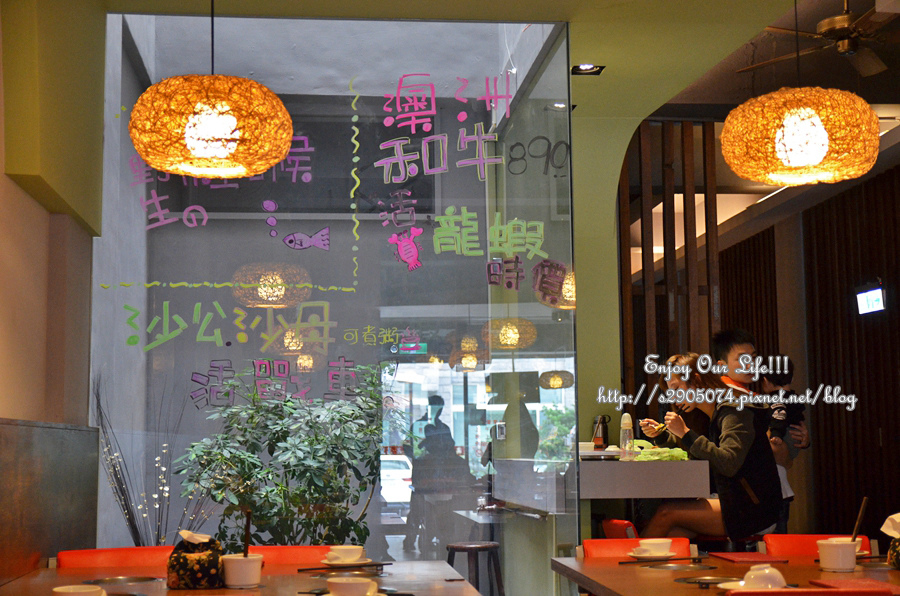 澳洲
和牛 899
活龍蝦
時價
生の
沙公.沙母 可煮粥
活戰車
Enjoy Our Life!!!
http://s2905074.pixnet.net/blog